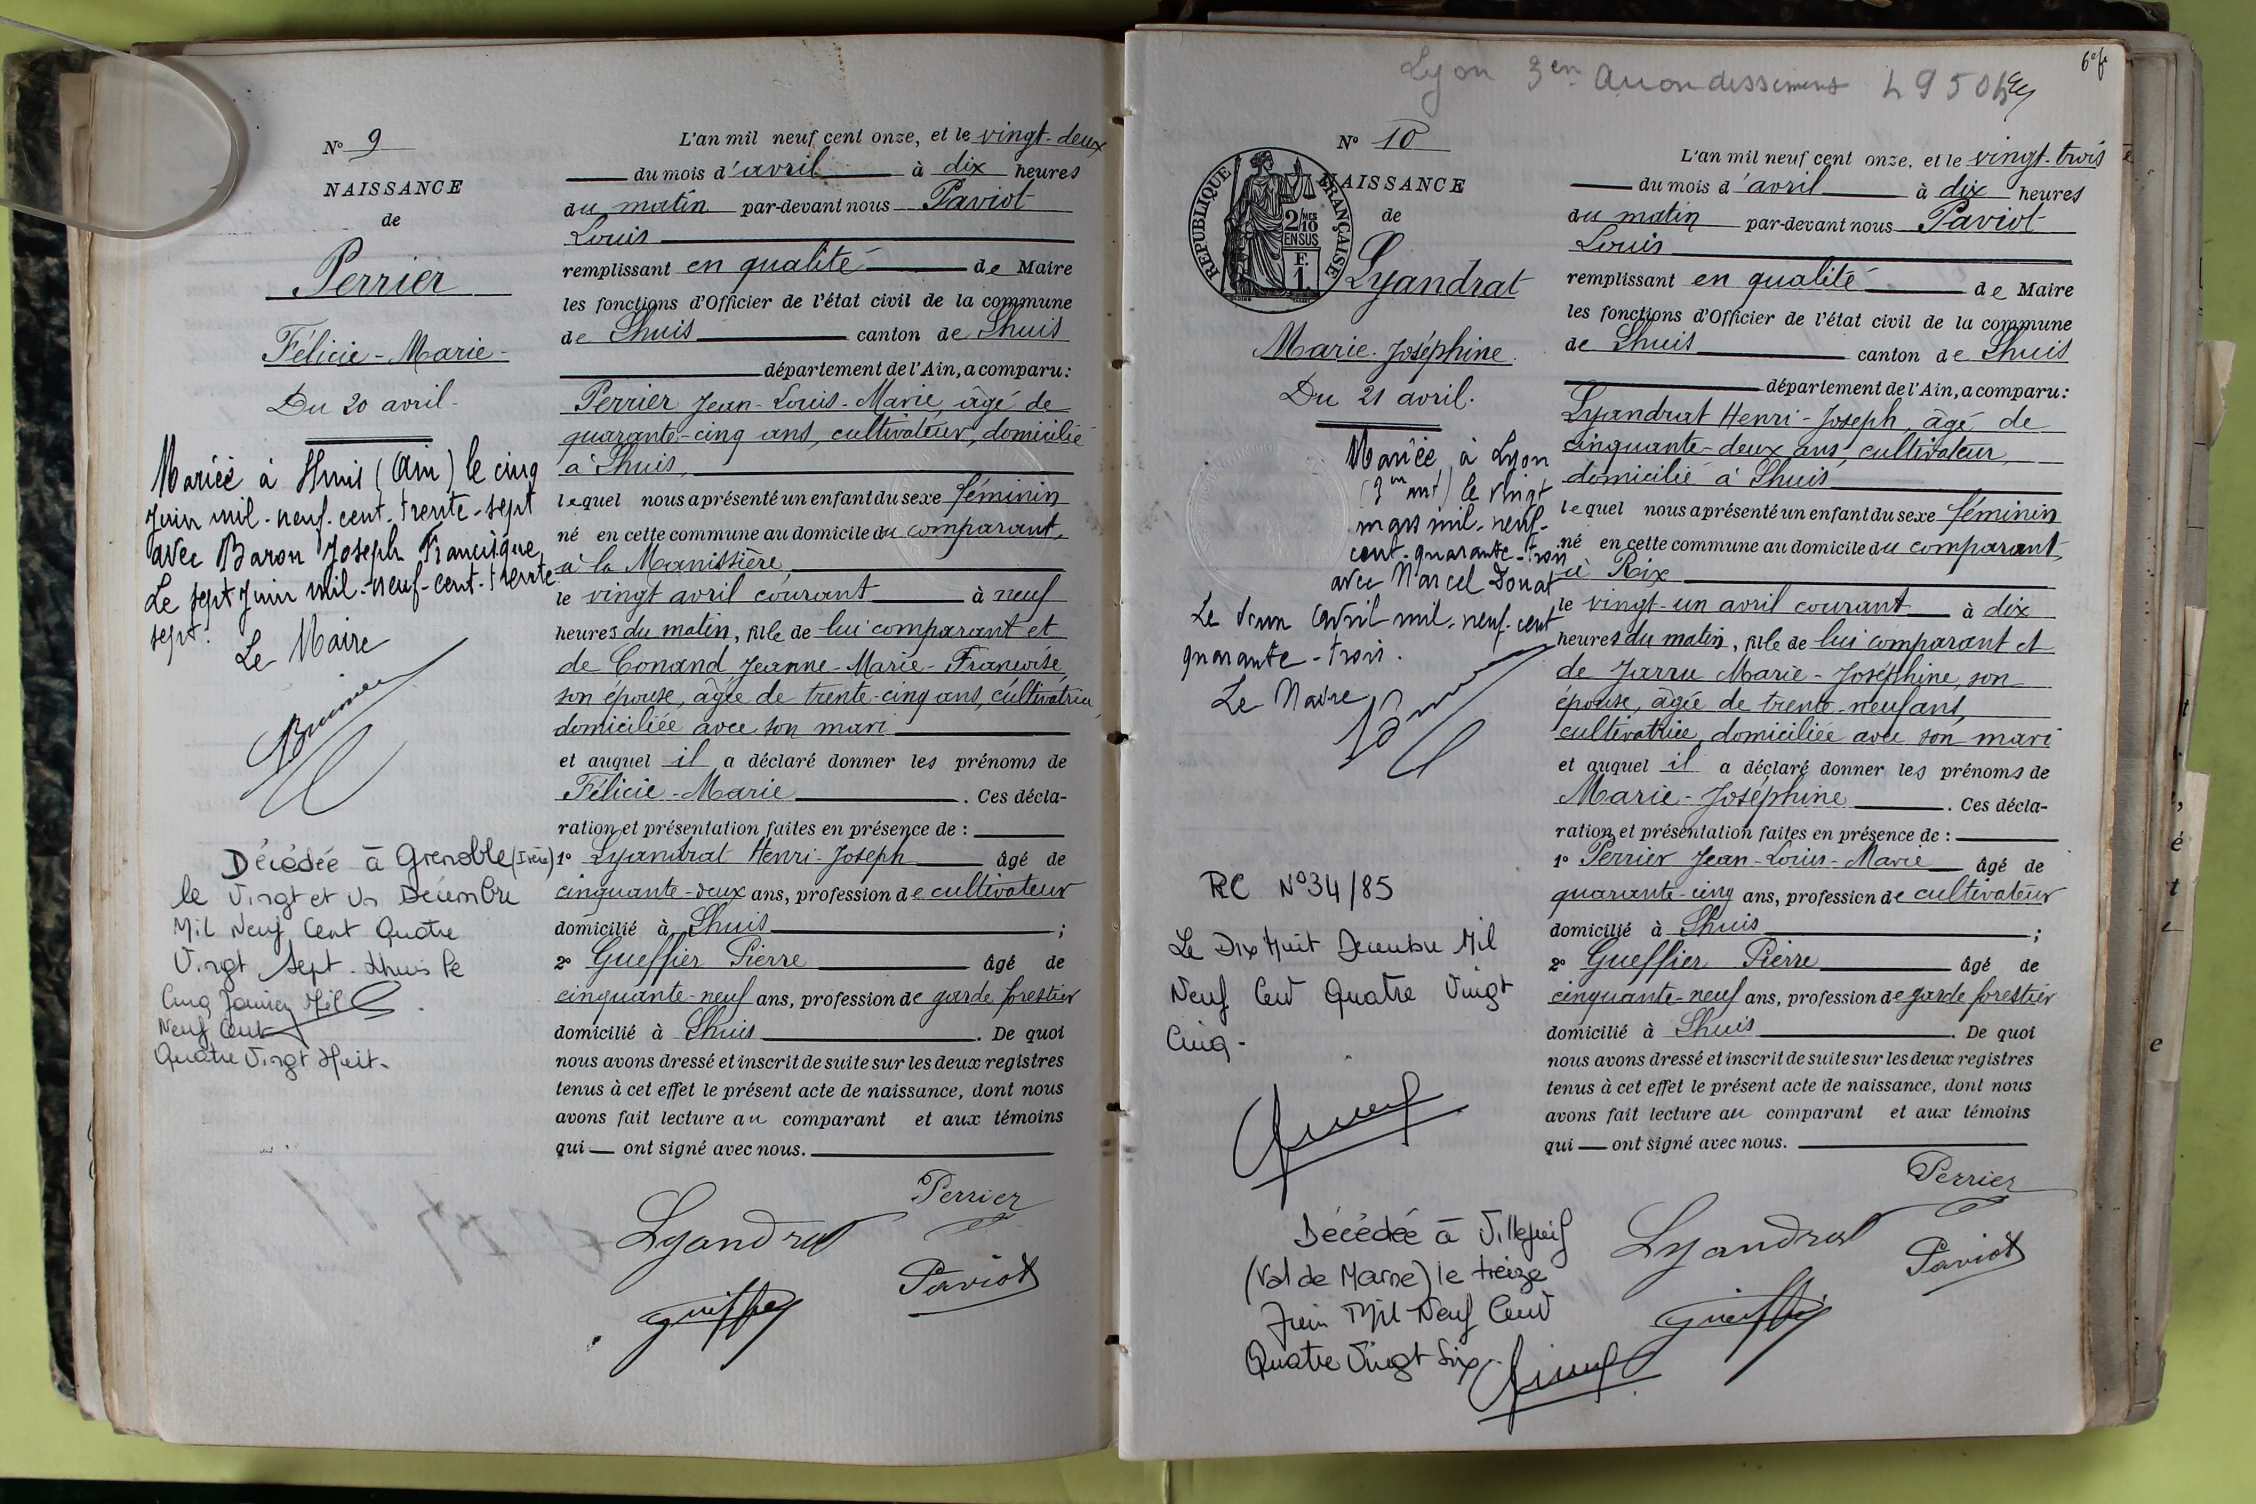 N° 9
NAISSANCE
de
Perrier
Félicie-Marie-
Du 20 avril-
Mariée à Lhuis (Ain) le cinq
Juin mil-neuf-cent-trente-sept
avec Baron Joseph Francisque
Le sept Juin mil-neuf-cent-trente
sept.
Le Maire
Décédée à Grenoble (Isère)
le Vingt et Un Décembre
Mil Neuf Cent Quatre
Vingt Sept. Lhuis le
Cinq Janvier Mil
Neuf Cent
Quatre Vingt Huit-
L'an mil neuf cent onze, et le vingt-deux
du mois d'avril à dix heures
du matin par-devant nous Paviot
Louis
remplissant en qualité de Maire
les fonctions d'Officier de l'état civil de la commune
de Lhuis canton de Lhuis
département de l'Ain, a comparu:
Perrier Jean-Louis-Marie, âgé de
quarante-cinq ans, cultivateur, domicilié
à Lhuis,
lequel nous a présenté un enfant du sexe féminin
né en cette commune au domicile du comparant,
à la Manissière,
le vingt avril courant à neuf
heures du matin, fille de lui comparant et
de Conand Jeanne-Marie-Françoise,
son épouse, âgée de trente-cinq ans, cultivatrice,
domiciliée avec son mari
et auquel il a déclaré donner les prénoms de
Félicie-Marie . Ces décla-
ration et présentation faites en présence de :
1° Lyandrat Henri-Joseph âgé de
cinquante-deux ans, profession de cultivateur
domicilié à Lhuis ;
2° Gueffier Pierre âgé de
cinquante-neuf ans, profession de garde forestier
domicilié à Lhuis . De quoi
nous avons dressé et inscrit de suite sur les deux registres
tenus à cet effet le présent acte de naissance, dont nous
avons fait lecture au comparant et aux témoins
qui — ont signé avec nous.
Perrier
Lyandrat
Paviot
Gueffier
Lyon 3em Arrondissement
N° 10
REPUBLIQUE FRANÇAISE
2/10 MES
EN SUS
F.
1.
NAISSANCE
de
Lyandrat
Marie-Joséphine.
Du 21 avril.
Mariée, à Lyon
le vingt
mars mil-neuf-
cent-quarante-trois
avec Marcel Donat
Le avril mil-neuf-cent
quarante-trois.
Le Maire
RC N°34/85
Le Dix Huit Decembre Mil
Neuf Cent Quatre Vingt
Cinq-
Décédée à Villejuif
(Val de Marne) le treize
Juin Mil Neuf Cent
Quatre Vingt Six-
L'an mil neuf cent onze, et le vingt-trois
du mois d'avril à dix heures
du matin par-devant nous Paviot
Louis
remplissant en qualité de Maire
les fonctions d'Officier de l'état civil de la commune
de Lhuis canton de Lhuis
département de l'Ain, a comparu:
Lyandrat Henri-Joseph, âgé de
cinquante-deux ans, cultivateur,
domicilié à Lhuis
lequel nous a présenté un enfant du sexe féminin
né en cette commune au domicile du comparant,
à Rix
le vingt-un avril courant à dix
heures du matin, fille de lui comparant et
de Jarru Marie-Joséphine, son
épouse, âgée de trente-neuf ans,
cultivatrice, domiciliée avec son mari
et auquel il a déclaré donner les prénoms de
Marie-Joséphine . Ces décla-
ration et présentation faites en présence de :
1° Perrier Jean-Louis-Marie âgé de
quarante-cinq ans, profession de cultivateur
domicilié à Lhuis ;
2° Gueffier Pierre âgé de
cinquante-neuf ans, profession de garde forestier
domicilié à Lhuis . De quoi
nous avons dressé et inscrit de suite sur les deux registres
tenus à cet effet le présent acte de naissance, dont nous
avons fait lecture au comparant et aux témoins
qui — ont signé avec nous.
Perrier
Lyandrat
Paviot
Gueffier